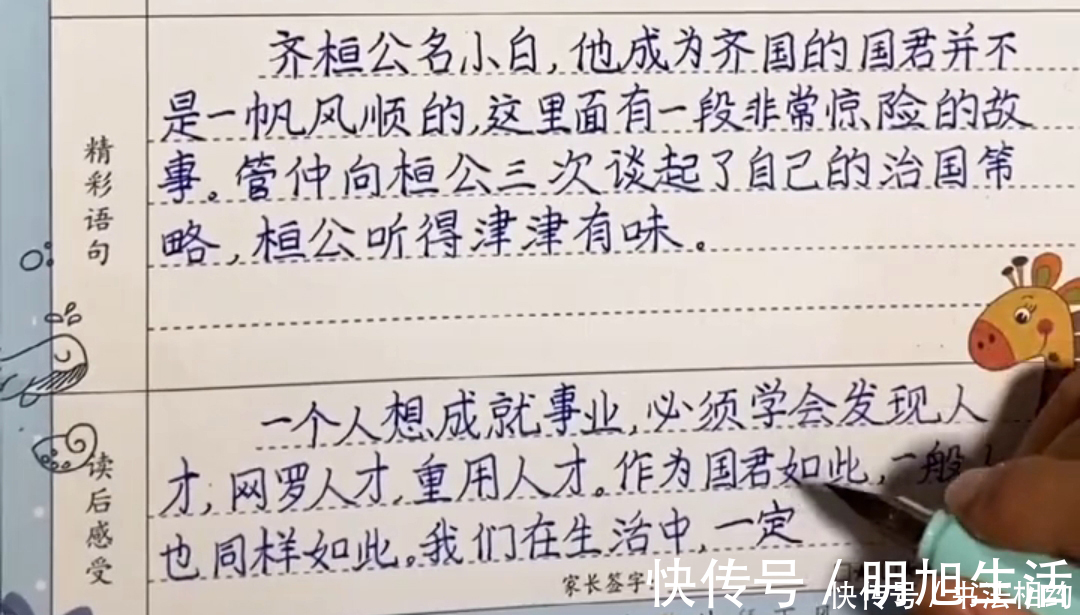 精彩语句
齐桓公名小白,他成为齐国的国君并不
是一帆风顺的,这里面有一段非常惊险的故
事。管仲向桓公三次谈起了自己的治国策
略,桓公听得津津有味。
读后感受
一个人想成就事业,必须学会发现人
才,网罗人才,重用人才。作为国君如此,一般
也同样如此。我们在生活中,一定
家长签字
快传号 / 明旭生活
快传号 / 书法相约